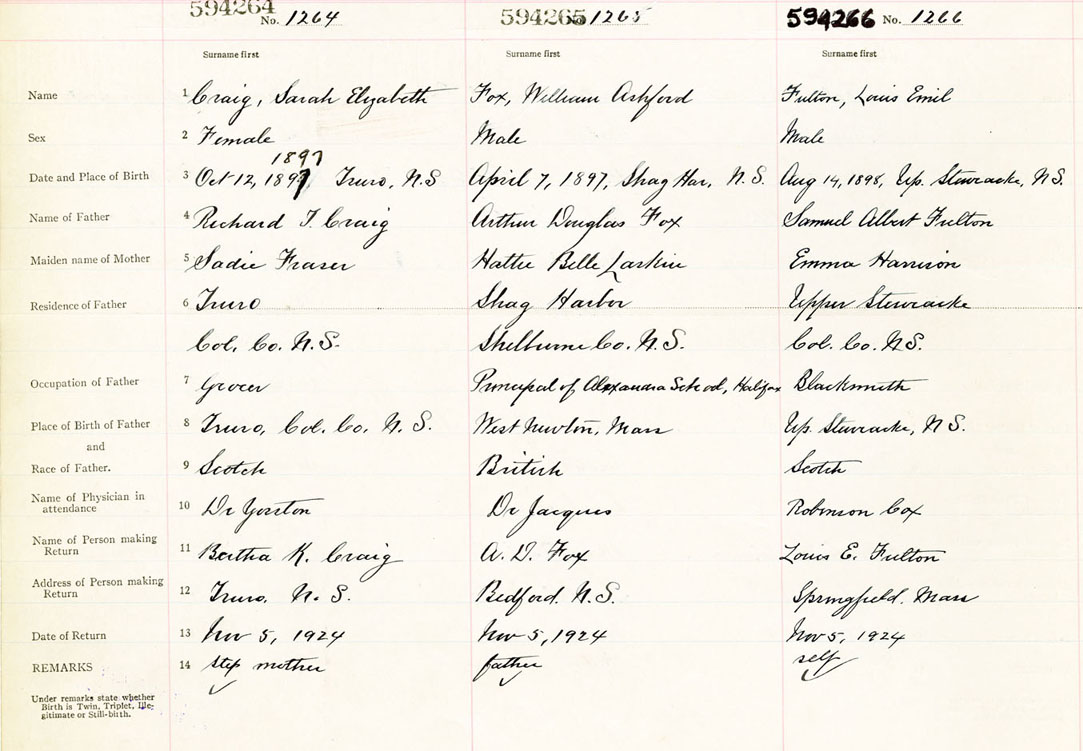 594264 No. 1264 594265 No. 1265 594266 No. 1266
Surname first Surname first Surname first
Name 1 Craig, Sarah Elizabeth Fox, William Ashford Fulton, Louis Emil
Sex 2 Female Male Male
1897
Date and Place of Birth 3 Oct 12, 1897 Truro, N.S April 7, 1897, Shag Har, N.S. Aug 14, 1898, Up. Stewiacke, N.S.
Name of Father 4 Richard T. Craig Arthur Douglas Fox Samuel Albert Fulton
Maiden name of Mother 5 Sadie Fraser Hattie Belle Larkin Emma Harrison
Residence of Father 6 Truro Shag Harbor Upper Stewiacke
Col. Co. N.S. Shelburne Co. N.S. Col. Co. N.S.
Occupation of Father 7 Grocer Principal of Alexandra School, Halifax Blacksmith
Place of Birth of Father 8 Truro, Col. Co. N.S. West Newton, Mass Up. Stewiacke, N.S.
and
Race of Father. 9 Scotch British Scotch
Name of Physician in
attendance 10 Dr Yorston Dr Jacques Robinson Cox
Name of Person making
Return 11 Bertha K. Craig A. D. Fox Louis E. Fulton
Address of Person making
Return 12 Truro. N.S. Bedford. N.S. Springfield. Mass
Date of Return 13 Nov 5, 1924 Nov 5, 1924 Nov 5, 1924
REMARKS 14 step mother father self
Under remarks state whether
Birth is Twin, Triplet, Ille-
gitimate or Still-birth.